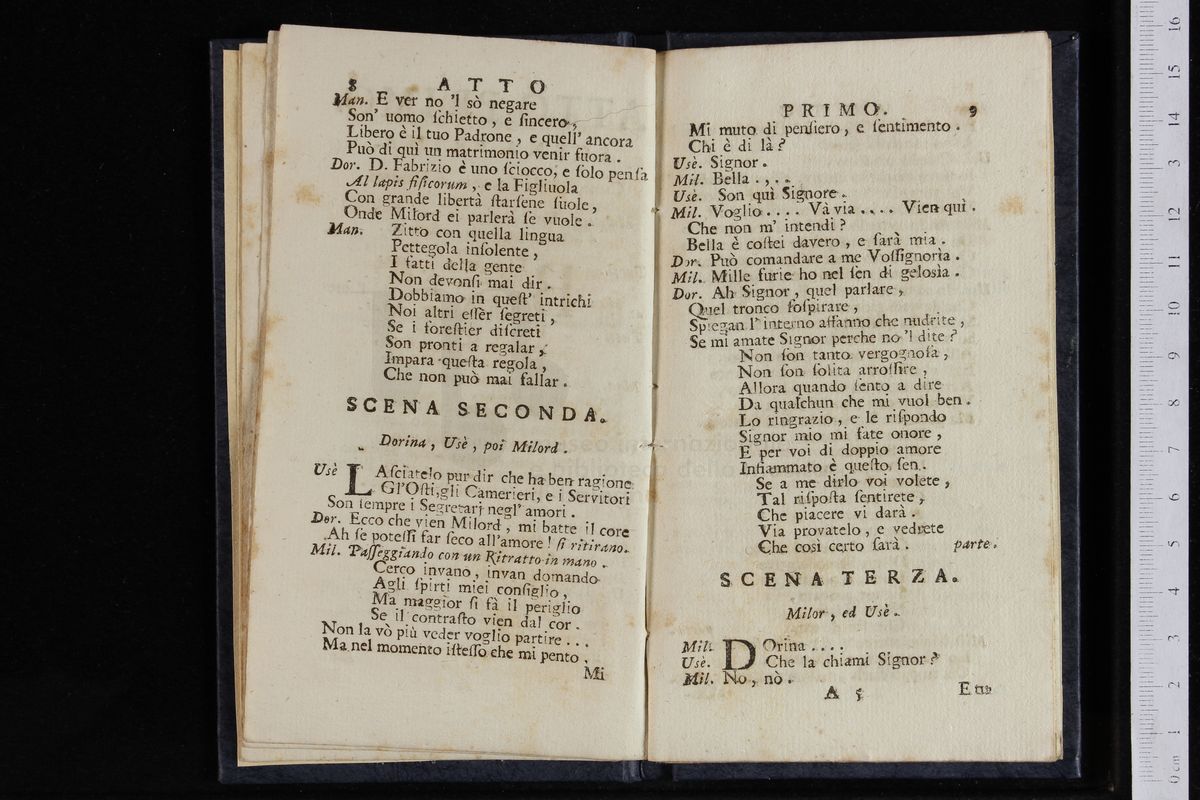 8 ATTO
Man. E ver no 'l sò negare
Son' uomo ſchietto, e ſincero,
Libero è il tuo Padrone, e quell' ancora
Può di quì un matrimonio venir fuora.
Dor. D. Fabrizio è uno ſciocco, e ſolo penſa
Al lapis fiſicorum, e la Figliuola
Con grande libertà ſtarſene ſuole,
Onde Milord ei parlerà ſe vuole.
Man. Zitto con quella lingua
Pettegola inſolente,
I fatti della gente
Non devonſi mai dir.
Dobbiamo in queſt' intrichi
Noi altri eſſer ſegreti,
Se i foreſtier diſcreti
Son pronti a regalar,
Impara queſta regola,
Che non può mai fallar.
SCENA SECONDA.
Dorina, Usè, poi Milord.
Usè LAſciatelo pur dir che ha ben ragione
Gl'Oſti, gli Camerieri, e i Servitori
Son ſempre i Segretarj negl' amori.
Dor. Ecco che vien Milord, mi batte il core
Ah ſe poteſſi far ſeco all'amore! ſi ritirano.
Mil. Paſſeggiando con un Ritratto in mano.
Cerco invano, invan domando
Agli ſpirti miei conſiglio,
Ma maggior ſi fà il periglio
Se il contraſto vien dal cor.
Non la vò più veder voglio partire...
Ma nel momento iſteſſo che mi pento,
Mi
PRIMO. 9
Mi muto di penſiero, e ſentimento.
Chi è di là?
Usè. Signor.
Mil. Bella . , . .
Usè. Son quì Signore.
Mil. Voglio.... Và via.... Vien quì.
Che non m' intendi?
Bella è coſtei davero, e ſarà mia.
Dor. Può comandare a me Voſſignorìa.
Mil. Mille furie ho nel ſen di geloſia.
Dor. Ah Signor, quel parlare,
Quel tronco ſoſpirare,
Spiegan l' interno affanno che nudrite,
Se mi amate Signor perche no 'l dite?
Non ſon tanto vergognoſa,
Non ſon ſolita arroſſire,
Allora quando ſento a dire
Da qualchun che mi vuol ben.
Lo ringrazio, e le riſpondo
Signor mio mi fate onore,
E per voi di doppio amore
Infiammato è queſto ſen.
Se a me dirlo voi volete,
Tal riſpoſta ſentirete,
Che piacere vi darà.
Via provatelo, e vedrete
Che così certo ſarà. parte.
SCENA TERZA.
Milor, ed Usè.
Mil. DOrina....
Usè. Che la chiami Signor?
Mil. No, nò.
A 5
0 cm 1 2 3 4 5 6 7 8 9 10 11 12 13 14 15 16